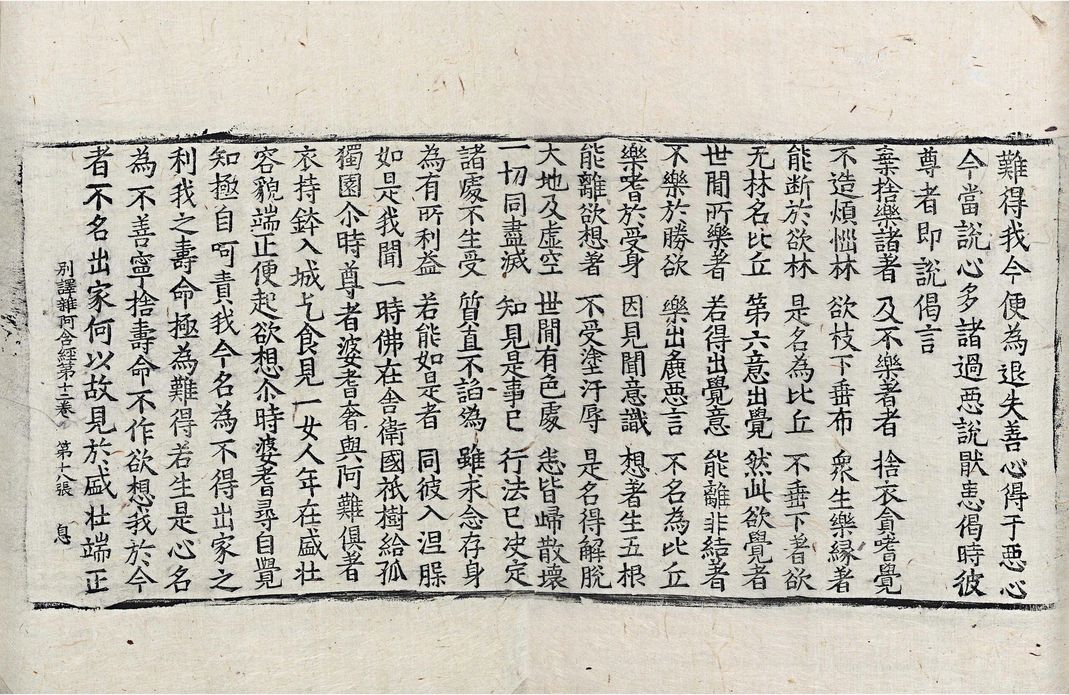 難得我今便為退失善心得于惡心
今當說心多諸過惡說猒恚偈時彼
尊者即說偈言
棄捨樂諸者 及不樂著者 捨衣貪嗜覺
不造煩惱林 欲枝下垂布 衆生樂緣著
能断於欲林 是名為比丘 不垂下著欲
无林名比丘 第六意出覺 然此欲覺者
世間所樂著 若得出覺意 能離非結著
不樂於勝欲 樂出麁惡言 不名為比丘
樂嗜於受身 因見聞意識 想者生五根
能離欲想著 不受塗汙辱 是名得解脫
大地及虛空 世間有色處 悉皆歸散壞
一切同盡滅 知見是事已 行法已决定
諸處不生受 質直不諂僞 雖求念存身
為有所利益 若能如是者 同彼入涅槃
如是我聞一時佛在舍衛國祇樹給孤
獨園尒時尊者婆耆奢與阿難俱著
衣持鉢入城乞食見一女人年在盛壮
容貌端正便起欲想尒時婆耆尋自覺
知極自呵責我今名為不得出家之
利我之壽命極為難得若生是心名
為不善寧捨壽命不作欲想我於今
者不名出家何以故見於盛壮端正
別譯雜阿含經第十二卷 第十八張 息